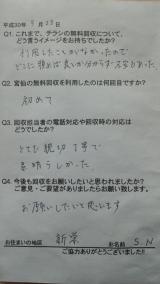 平成30年 9月 23日
Q1. これまで、チラシの無料回収について、
どう言うイメージをお持ちでしたか?
利用したことがなかったので
どこに頼めば良いか分からず、不安だった。
Q2. 宮仙の無料回収を利用したのは何回目ですか?
初めて
Q3. 回収担当者の電話対応や回収時の対応は
どうでしたか?
とても親切丁寧で
素晴らしかった。
Q4. 今後も回収をお願いしたいと思われましたか?
ご意見・ご要望がありましたらお願い致します。
お願いしたいと思います
お住まいの地区 新栄 お名前 S.N
ご協力ありがとうございました!!